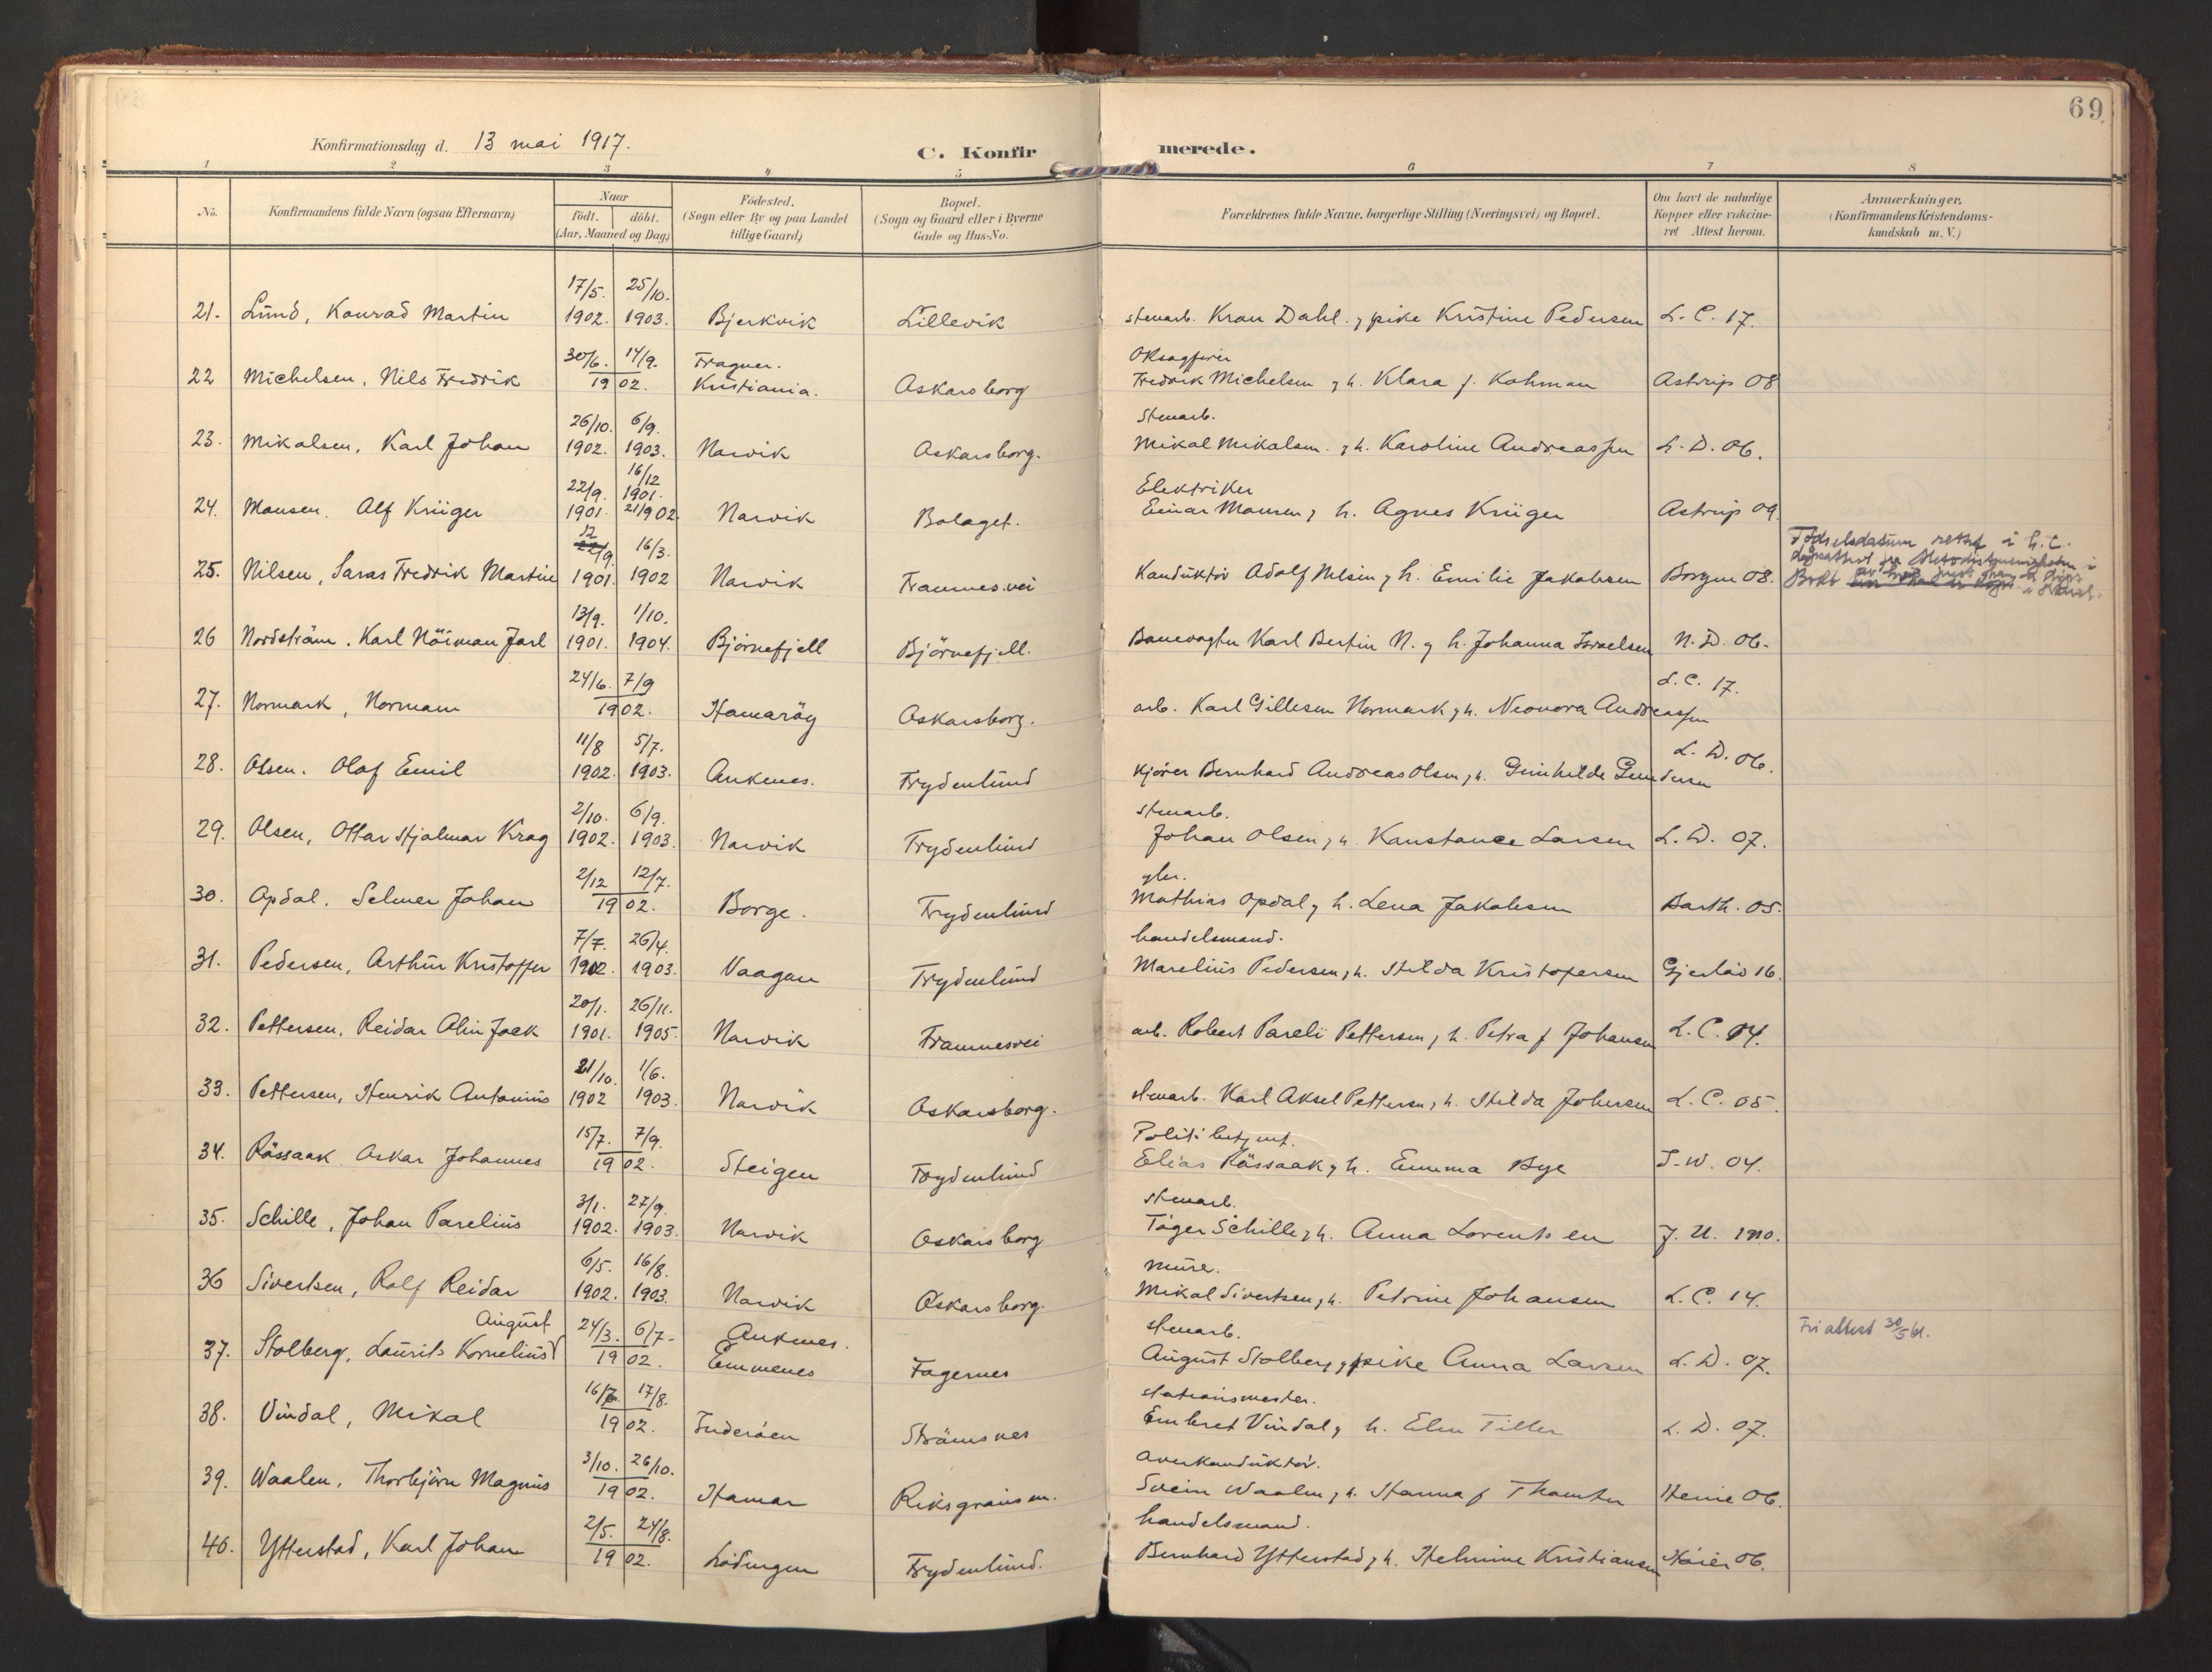 69
Konfirmationsdag d. 13 mai 1917.
C. Konfirmerede.
1 2 3 4 5 6 7 8
No.
Konfirmandens fulde Navn (ogsaa Efternavn)
Naar
födt. döbt.
(Aar, Maaned og Dag)
Födested.
(Sogn eller By og paa Landet
tillige Gaard)
Bopæl.
(Sogn og Gaard eller i Byerne
Gade og Hus-No.
Forældrenes fulde Navne, borgerlige Stilling (Næringsvei) og Bopæl.
Om havt de naturlige
Kopper eller vakcine-
ret Attest herom.
Anmærkninger.
(Konfirmandens Kristendoms-
kundskab m. V.)
17/5. 25/10.
21. Lund, Konrad Martin 1902. 1903. Bjerkvik Lillevik stenarb. Kran Dahl. og pike Kristine Pedersen L. C. 17.
30/6. 14/9. Fragner. Oksagfører
22 Michelsen, Nils Fredrik 1902. Kristiania. Oskarsborg Fredrik Michelsen og h. Klara f. Kohman Astrup 08
26/10. 6/9. Stenarb.
23. Mikalsen, Karl Johan 1902. 1903. Narvik Oskarsborg. Mikal Mikalsen. og h. Karoline Andreassen L. D. 06.
22/9. 16/12 1901. Elektriker
24. Monsen. Alf Krüger 1901. 21/9 02. Narvik Bolaget. Einar Monsen og h. Agnes Krüger Astrup 09.
12 22/9 16/3. Fødselsdatum rettet i h. t.
25. Nilsen, Saras Fredrik Martin 1901. 1902 Narvik Framnes.vei Konduktør Adolf Nilsen og h. Emilie Jakobsen Borgen 08.
13/9. 1/10.
26 Nordström. Karl Nöiman Jarl 1901. 1904. Björnefjell Björnefjell. Banevogter Karl Bertin N. og h. Johanna Israelsen N. D. 06.
24/6. 7/9 L. C. 17.
27. Normark, Normann 1902. Hamaröy Oskarsborg. arb. Karl Gillesen Normark og h. Neonora Andreassen
11/8 5/7. L. D. 06.
28. Olsen. Olaf Emil 1902. 1903. Ankenes. Frydenlund kjører Bernhard Andreas Olsen og h. Gunhilde Gundersen
2/10. 6/9. stenarb.
29. Olsen, Ottar Hjalmar Krag 1902. 1903. Narvik Frydenlund Johan Olsen og h. Konstance Larsen L. D. 07.
2/12 12/7.
30. Opdal. Selmer Johan 1902. Borge. Frydenlund Mathias Opdal og h. Lena Jakobsen Barth. 05.
7/7. 26/4. handelsmand.
31. Pedersen, Arthur Kristoffer 1902. 1903. Vaagan Frydenlund Marelius Pedersen og h. Hilda Kristofersen Gjerløv 16.
20/1. 26/11.
32. Pettersen, Reidar Alin Jack 1901. 1905. Narvik Framnesvei arb. Robert Pareli Pettersen og h. Petra f Johansen L. C. 04.
21/10. 1/6.
33. Pettersen, Henrik Antonius 1902 1903. Narvik Oskarsborg. stenarb. Karl Aksel Pettersen og h. Hilda Johnsen L. C. 05.
15/7. 7/9. Politibetjent.
34. Rössaak Oskar Johannes 1902. Steigen Frydenlund Elias Rössaak og h. Emma Bye J. W. 04.
3/1. 27/9. stenarb.
35. Schille, Johan Parelius 1902. 1903. Narvik Oskarsborg Töger Schille og h. Anna Lorentsen J. U. 1910.
6/5. 16/8. murer.
36 Sivertsen, Rolf Reidar 1902. 1903. Narvik Oskarsborg. Mikal Sivertsen og h. Petrine Johansen L. C. 14.
August 24/3. 6/7. Ankenes. stenarb. Fri attest 30/5 61.
37. Stolberg, Laurits Kornelius 1902. Emmenes Fagernes August Stolberg og pike Anna Larsen L. D. 07.
16/7 17/8. stationsmester.
38. Vindal, Mikal 1902. Inderöen Strömsnes Embret Vindal og h. Elen Tiller L. D. 07.
3/10. 26/10. overkonduktör.
39. Waalen, Thorbjörn Magnus 1902. Hamar Riksgränsen. Svein Waalen og h. Hanna f Thomter Heine 06.
2/5. 24/8. handelsmand.
40. Ytterstad, Karl Johan 1902. Lödingen Frydenlund. Bernhard Ytterstad og h. Helmine Kristiansen Höier 06.